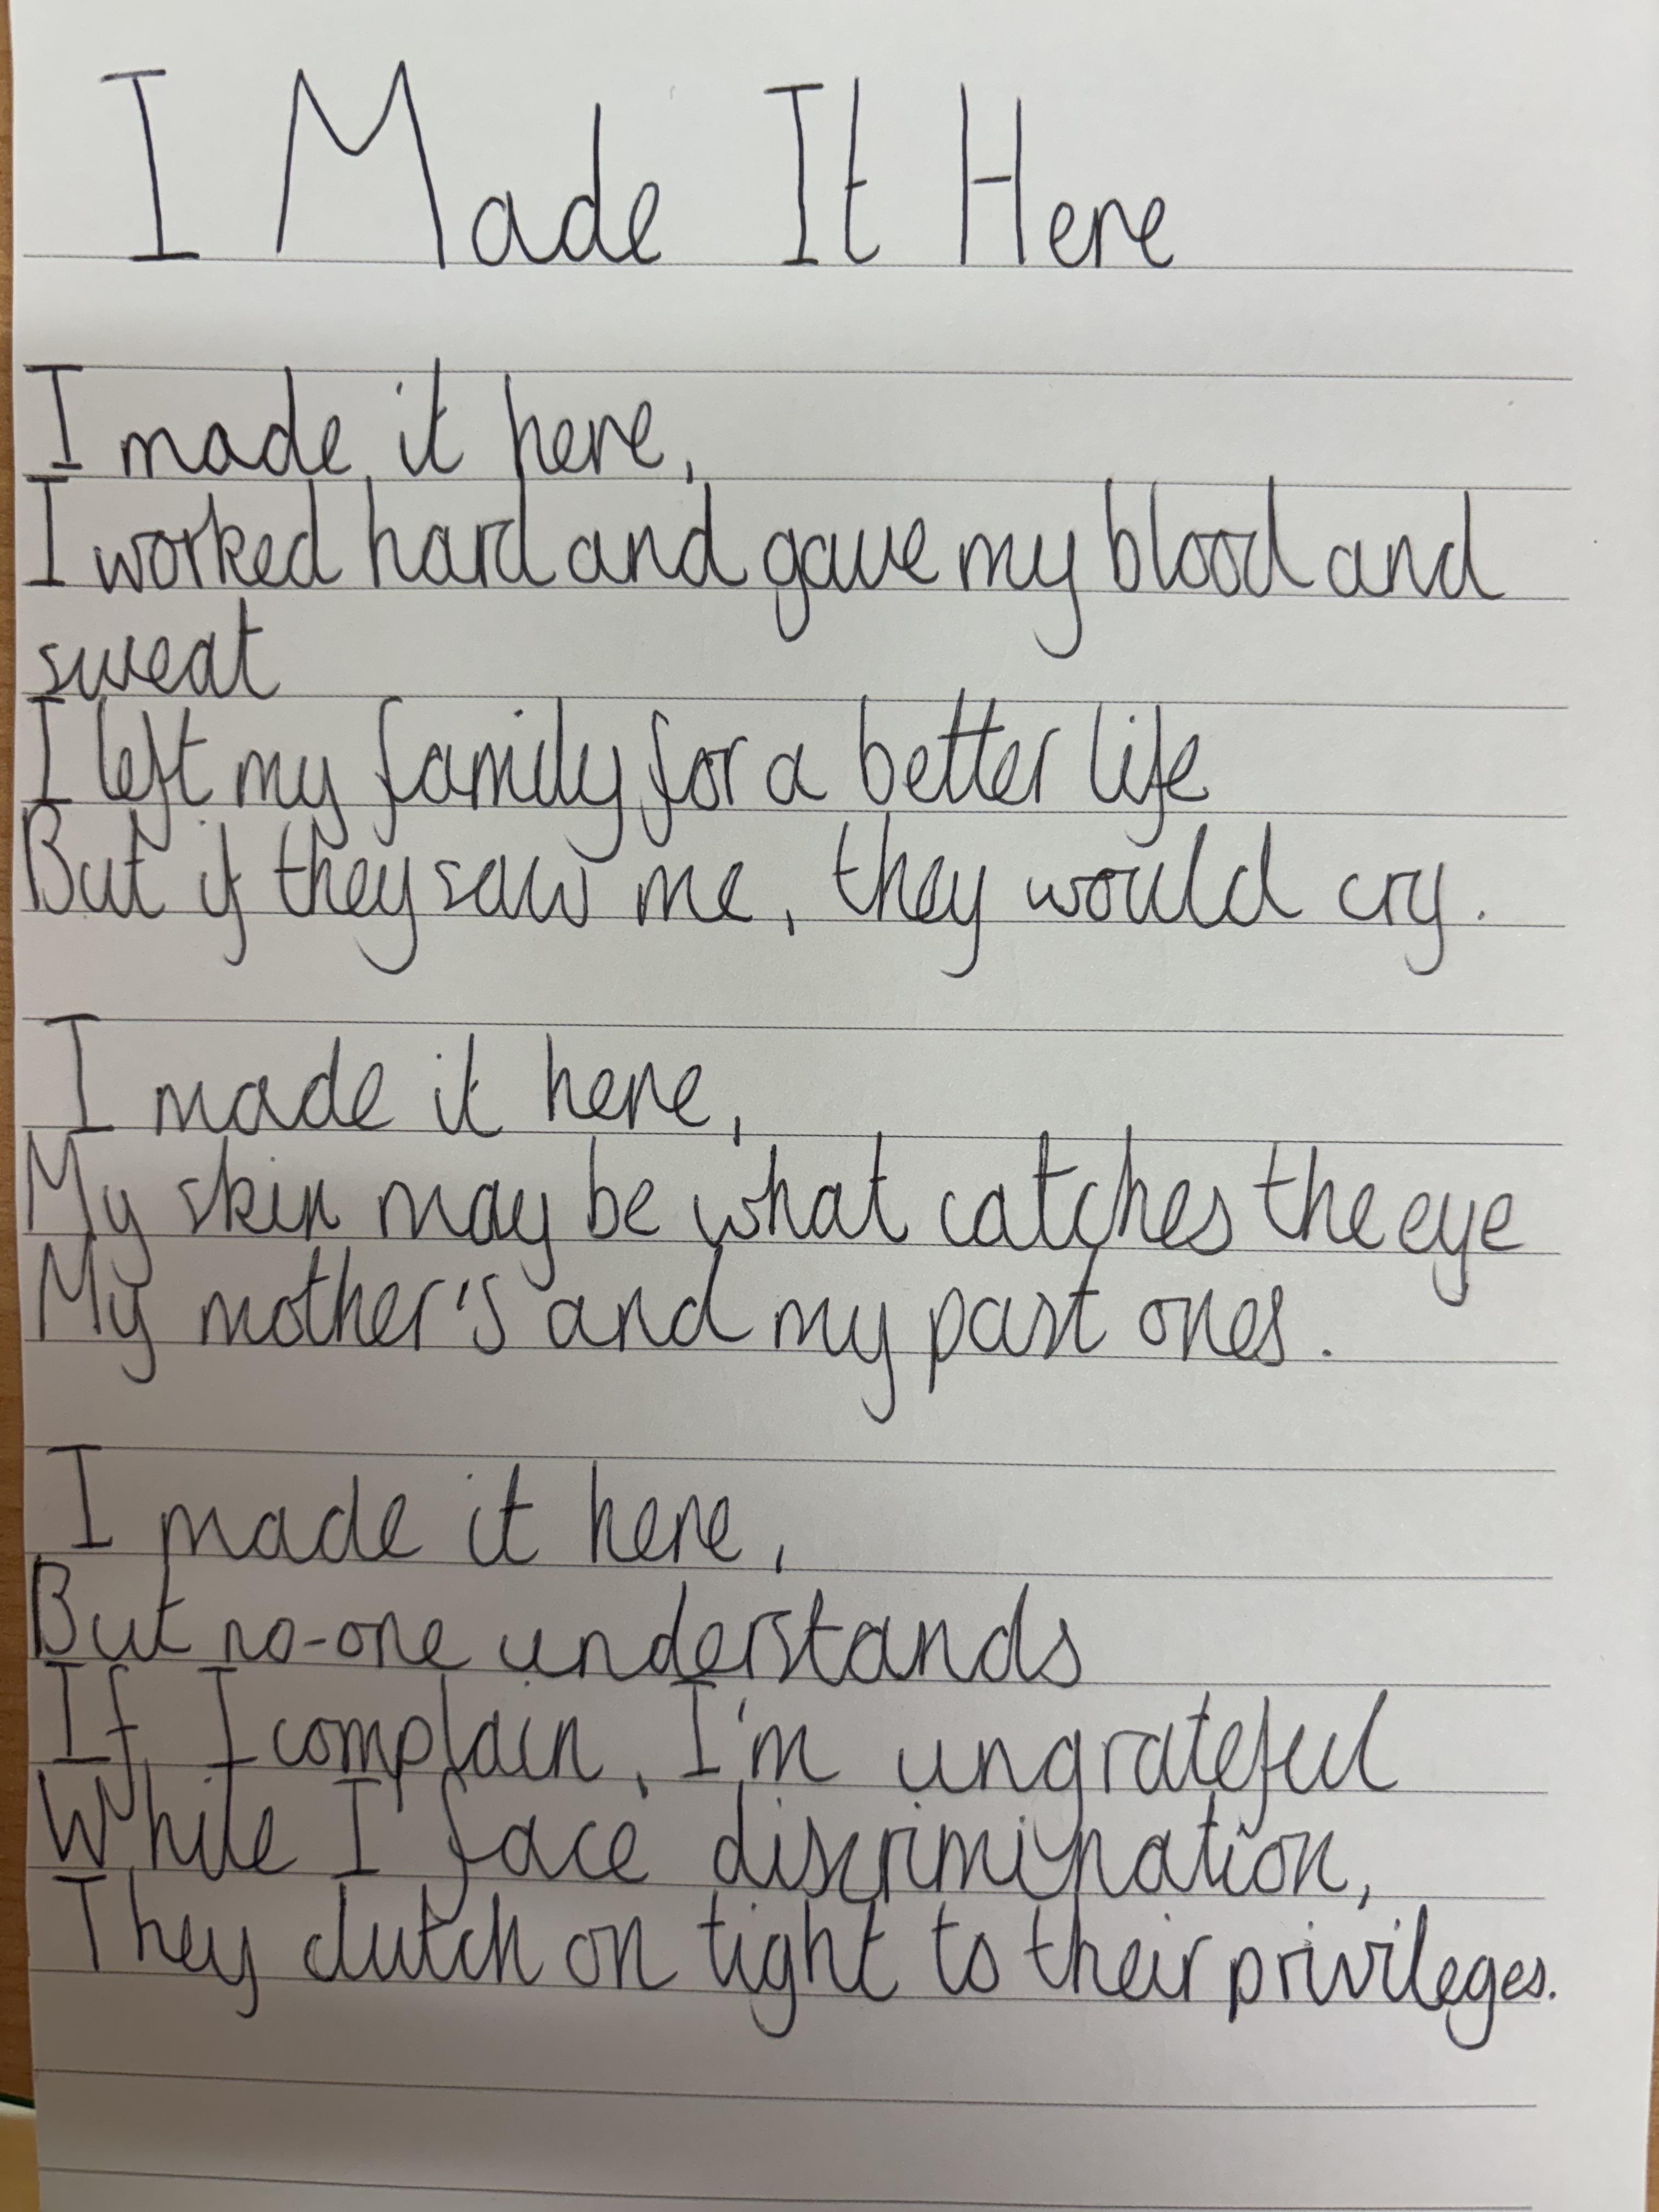 I Made It Here
I made it here,
I worked hard and gave my blood and
sweat
I left my family for a better life
But if they saw me, they would cry.
I made it here,
My skin may be what catches the eye
My mother's and my past ones.
I made it here,
But no-one understands
If I complain, I'm ungrateful
While I face discrimination,
They clutch on tight to their privileges.